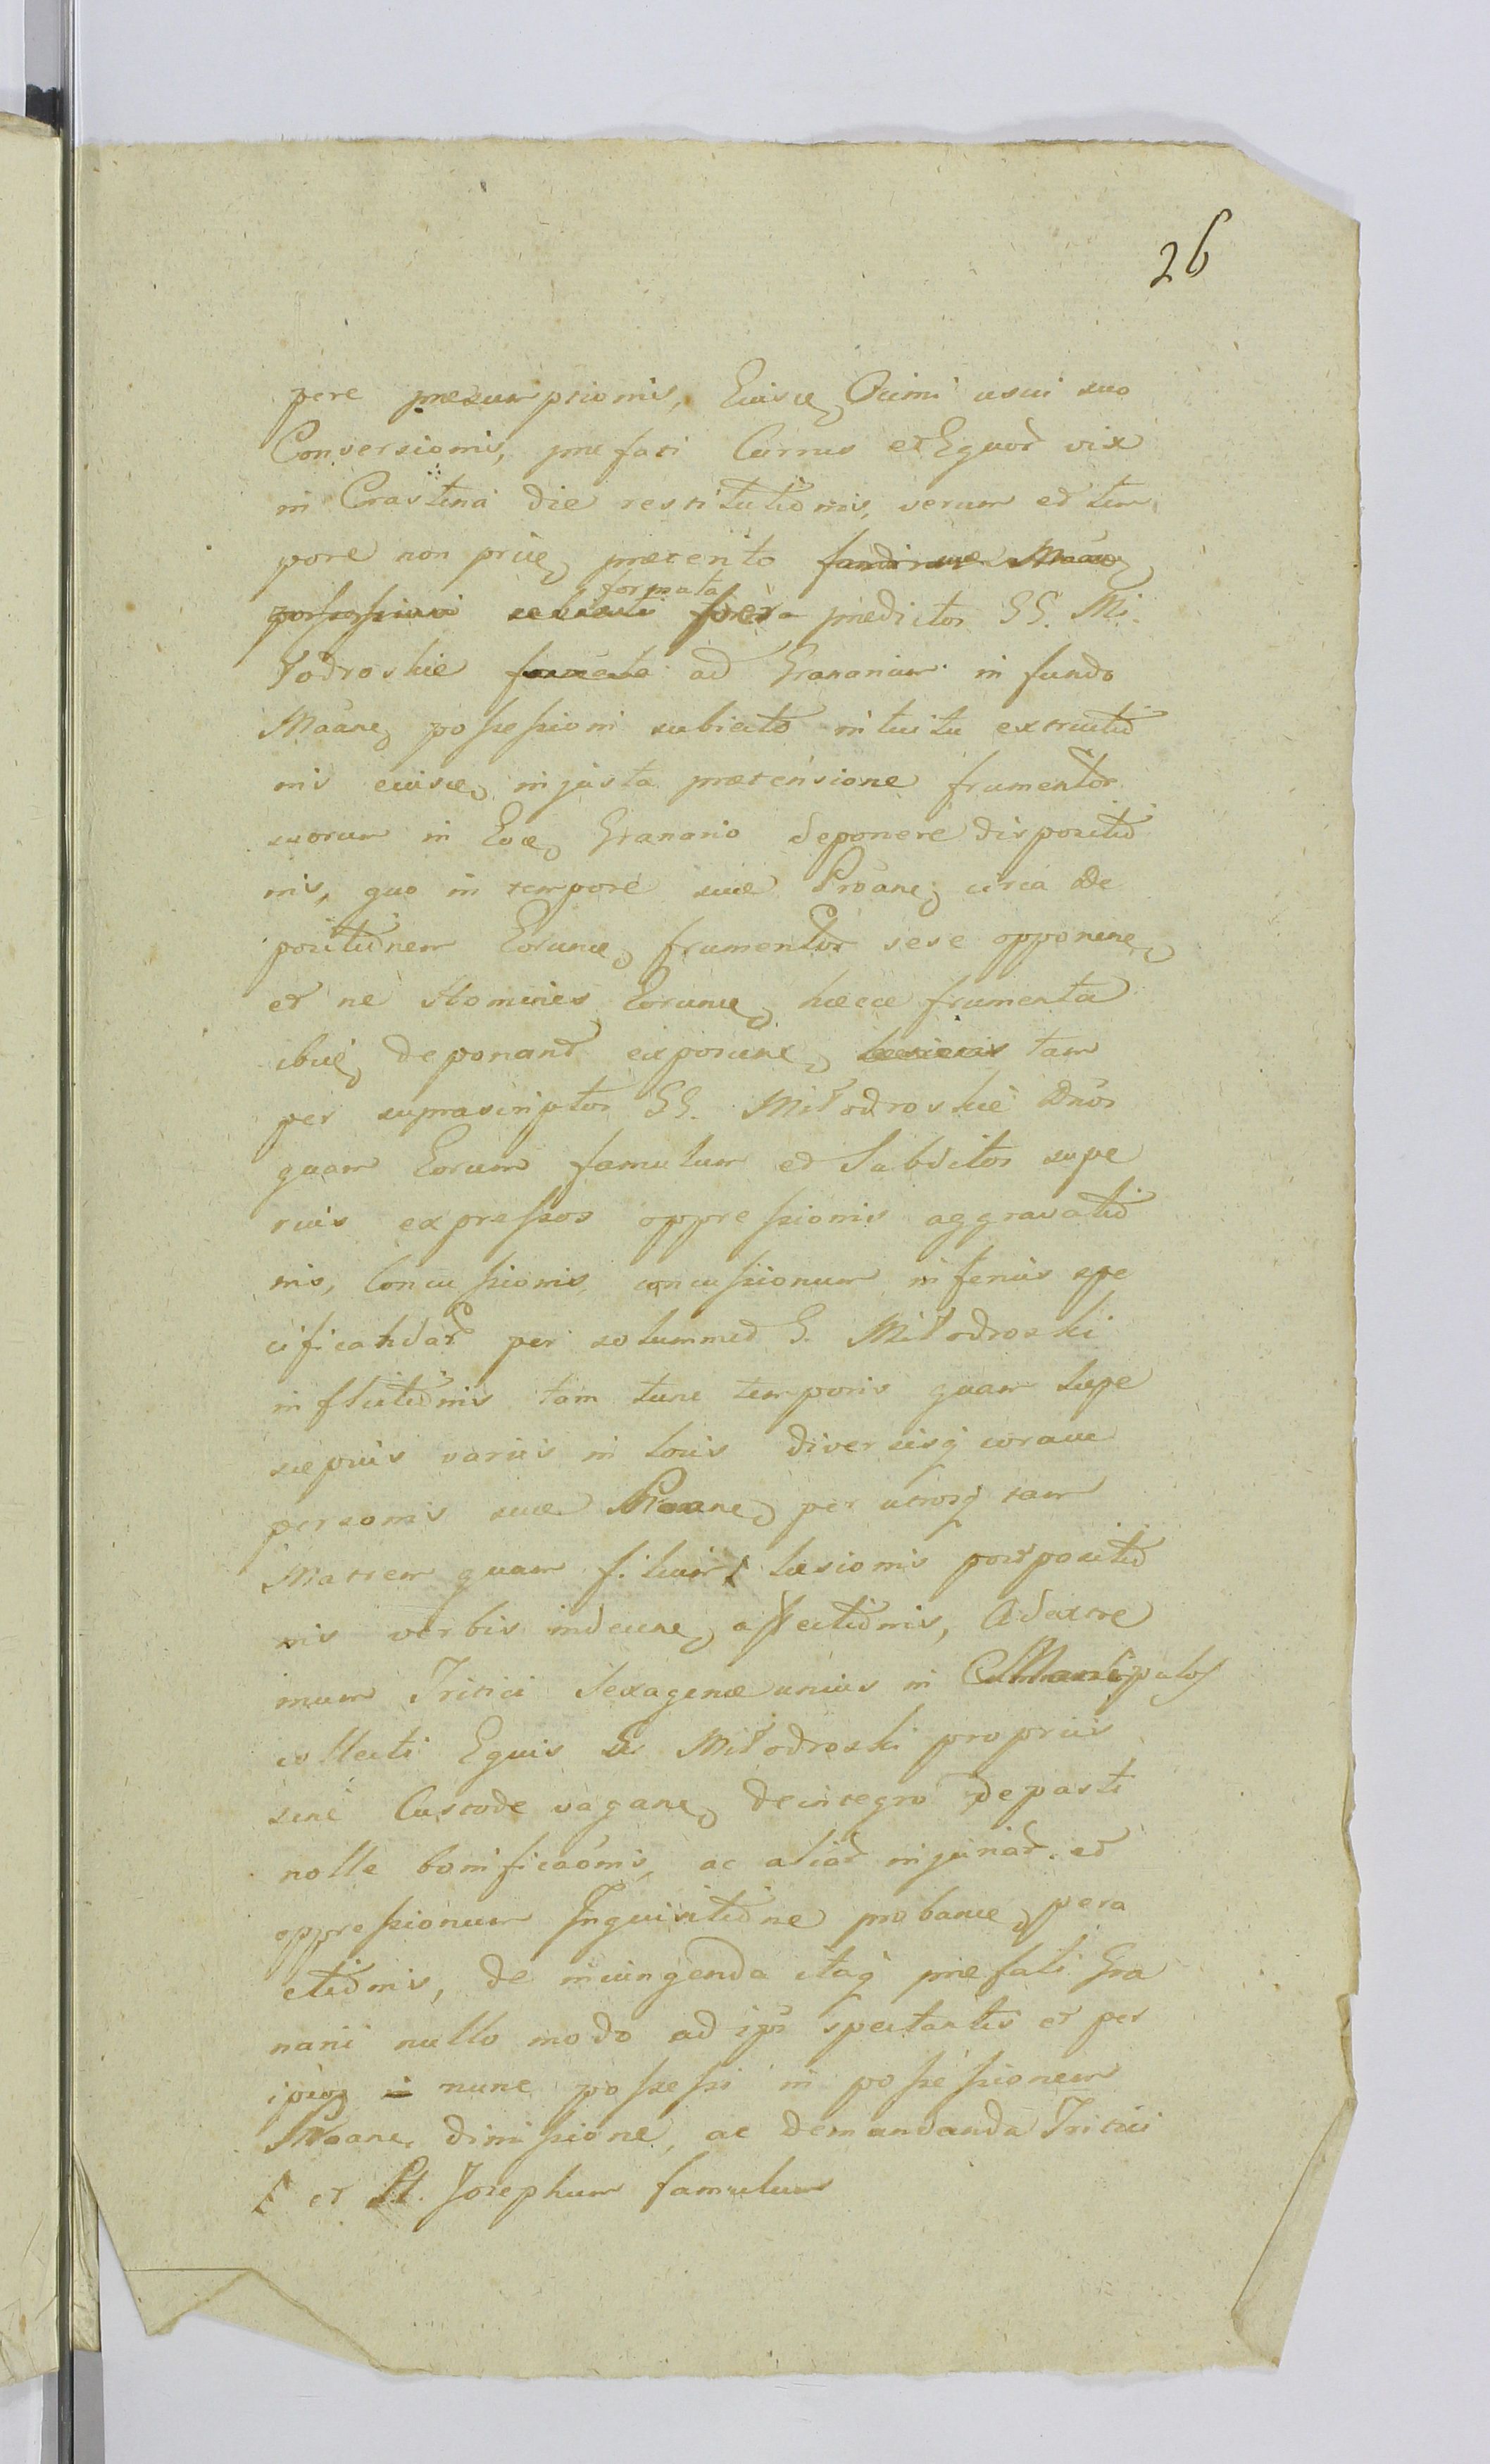 26
pere præsumptionis, Eiusce Ocimi usui suo
Conversionis, præfati Currus et Equor vix
in Crastina die restitutionis, verum et tem
pore non priue præterito
formata
predictos GG. Mi
łodroskie ad Granarium in fundo
Maane possessioni subiecto intuitu extructio
nis eiusce injusta prætensione frumentor
suorum in Eoce Granario deponere dispositio
nis, quo in tempore suæ Proane circa de
positionem Eorunce frumentor sese opponene
et ne Homines Eorunce hæcce frumenta
ibue deponant exposcene tam
per suprascriptos GG. Miłodroskie Dnos
quam Eorum famulum et Subditos supe
rius expressos oppressionis aggravatio
nis, Concussionis concussionum inferius spe
cificandar per solummo G. Miłodroski
inflictionis tam tunc temporis quam sæpe
sæpius variis in locis diversisq corave
personis suæ Proane per utrosq tam
Matrem quam filium læsionis postpositio
nis verbis indecene affectionis, Ad extre
mum Tritici Sexagenæ unius in Manipulos
collecti Equis G. Miłodroski propriis
sine Custode vagane deintegro depasti
nolle bonificaonis, ac aliar injuriar et
oppressionum Inquisitione probance pera
ctionis, de iniungenda itaq præfati Gra
narii nullo modo ad ips spectantis et per
ipsos nunc possessi in possessionem
Proane dimissione, ac demandanda Tritici
et H. Josephum famulum